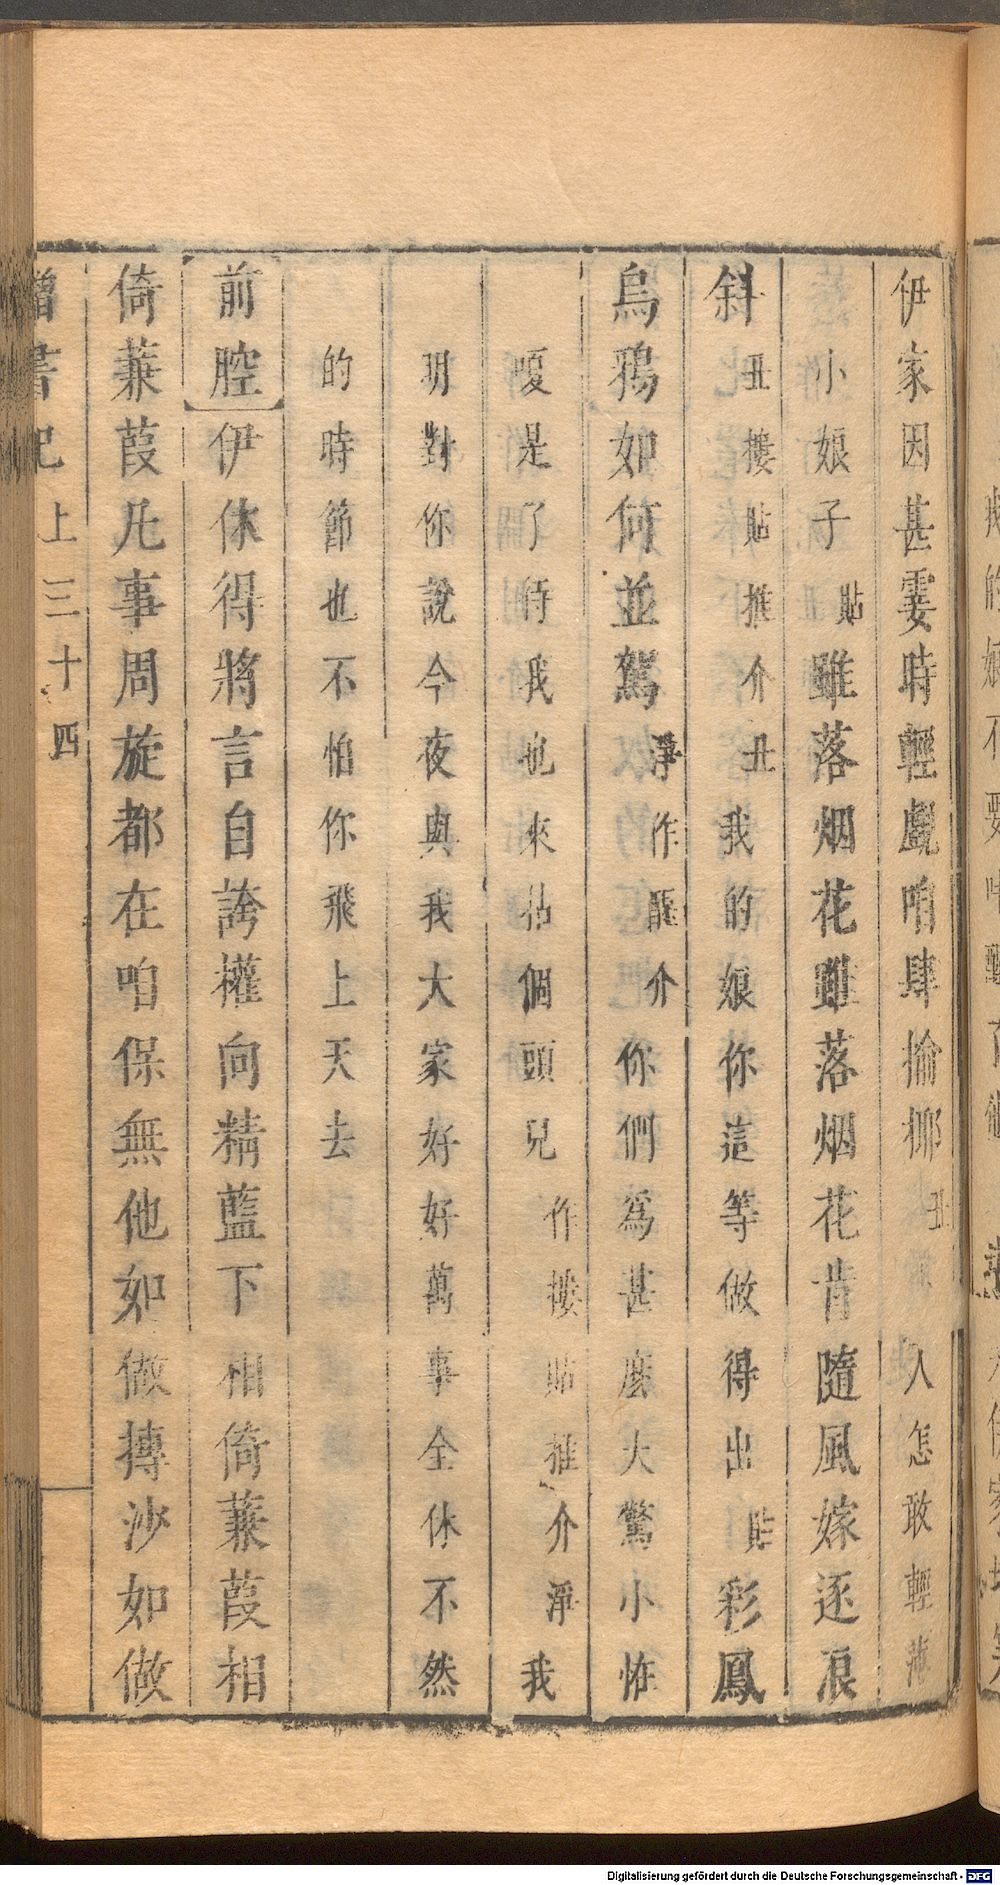 伊家因甚霎時輕覷咱肆揄揶丑人怎敢輕薄
小娘子貼雖落烟花雖落烟花肯隨風嫁逐浪
斜丑摟貼推介丑我的娘你這等做得出貼彩鳳
烏鴉如何並駕淨作醒介你們爲甚麽大驚小怪
嗄是了待我也來拈個頭兒作摟貼推介淨我
玥對你說今夜與我大家好好萬事全休不然
的時節也不怕你飛上天去
前腔伊休得將言自誇權向精藍下相倚蒹葭相
倚蒹葭凢事周旋都在咱保無他如做摶沙如做
書記上三十四
Digitalisierung gefördert durch die Deutsche Forschungsgemeinschaft - DFG